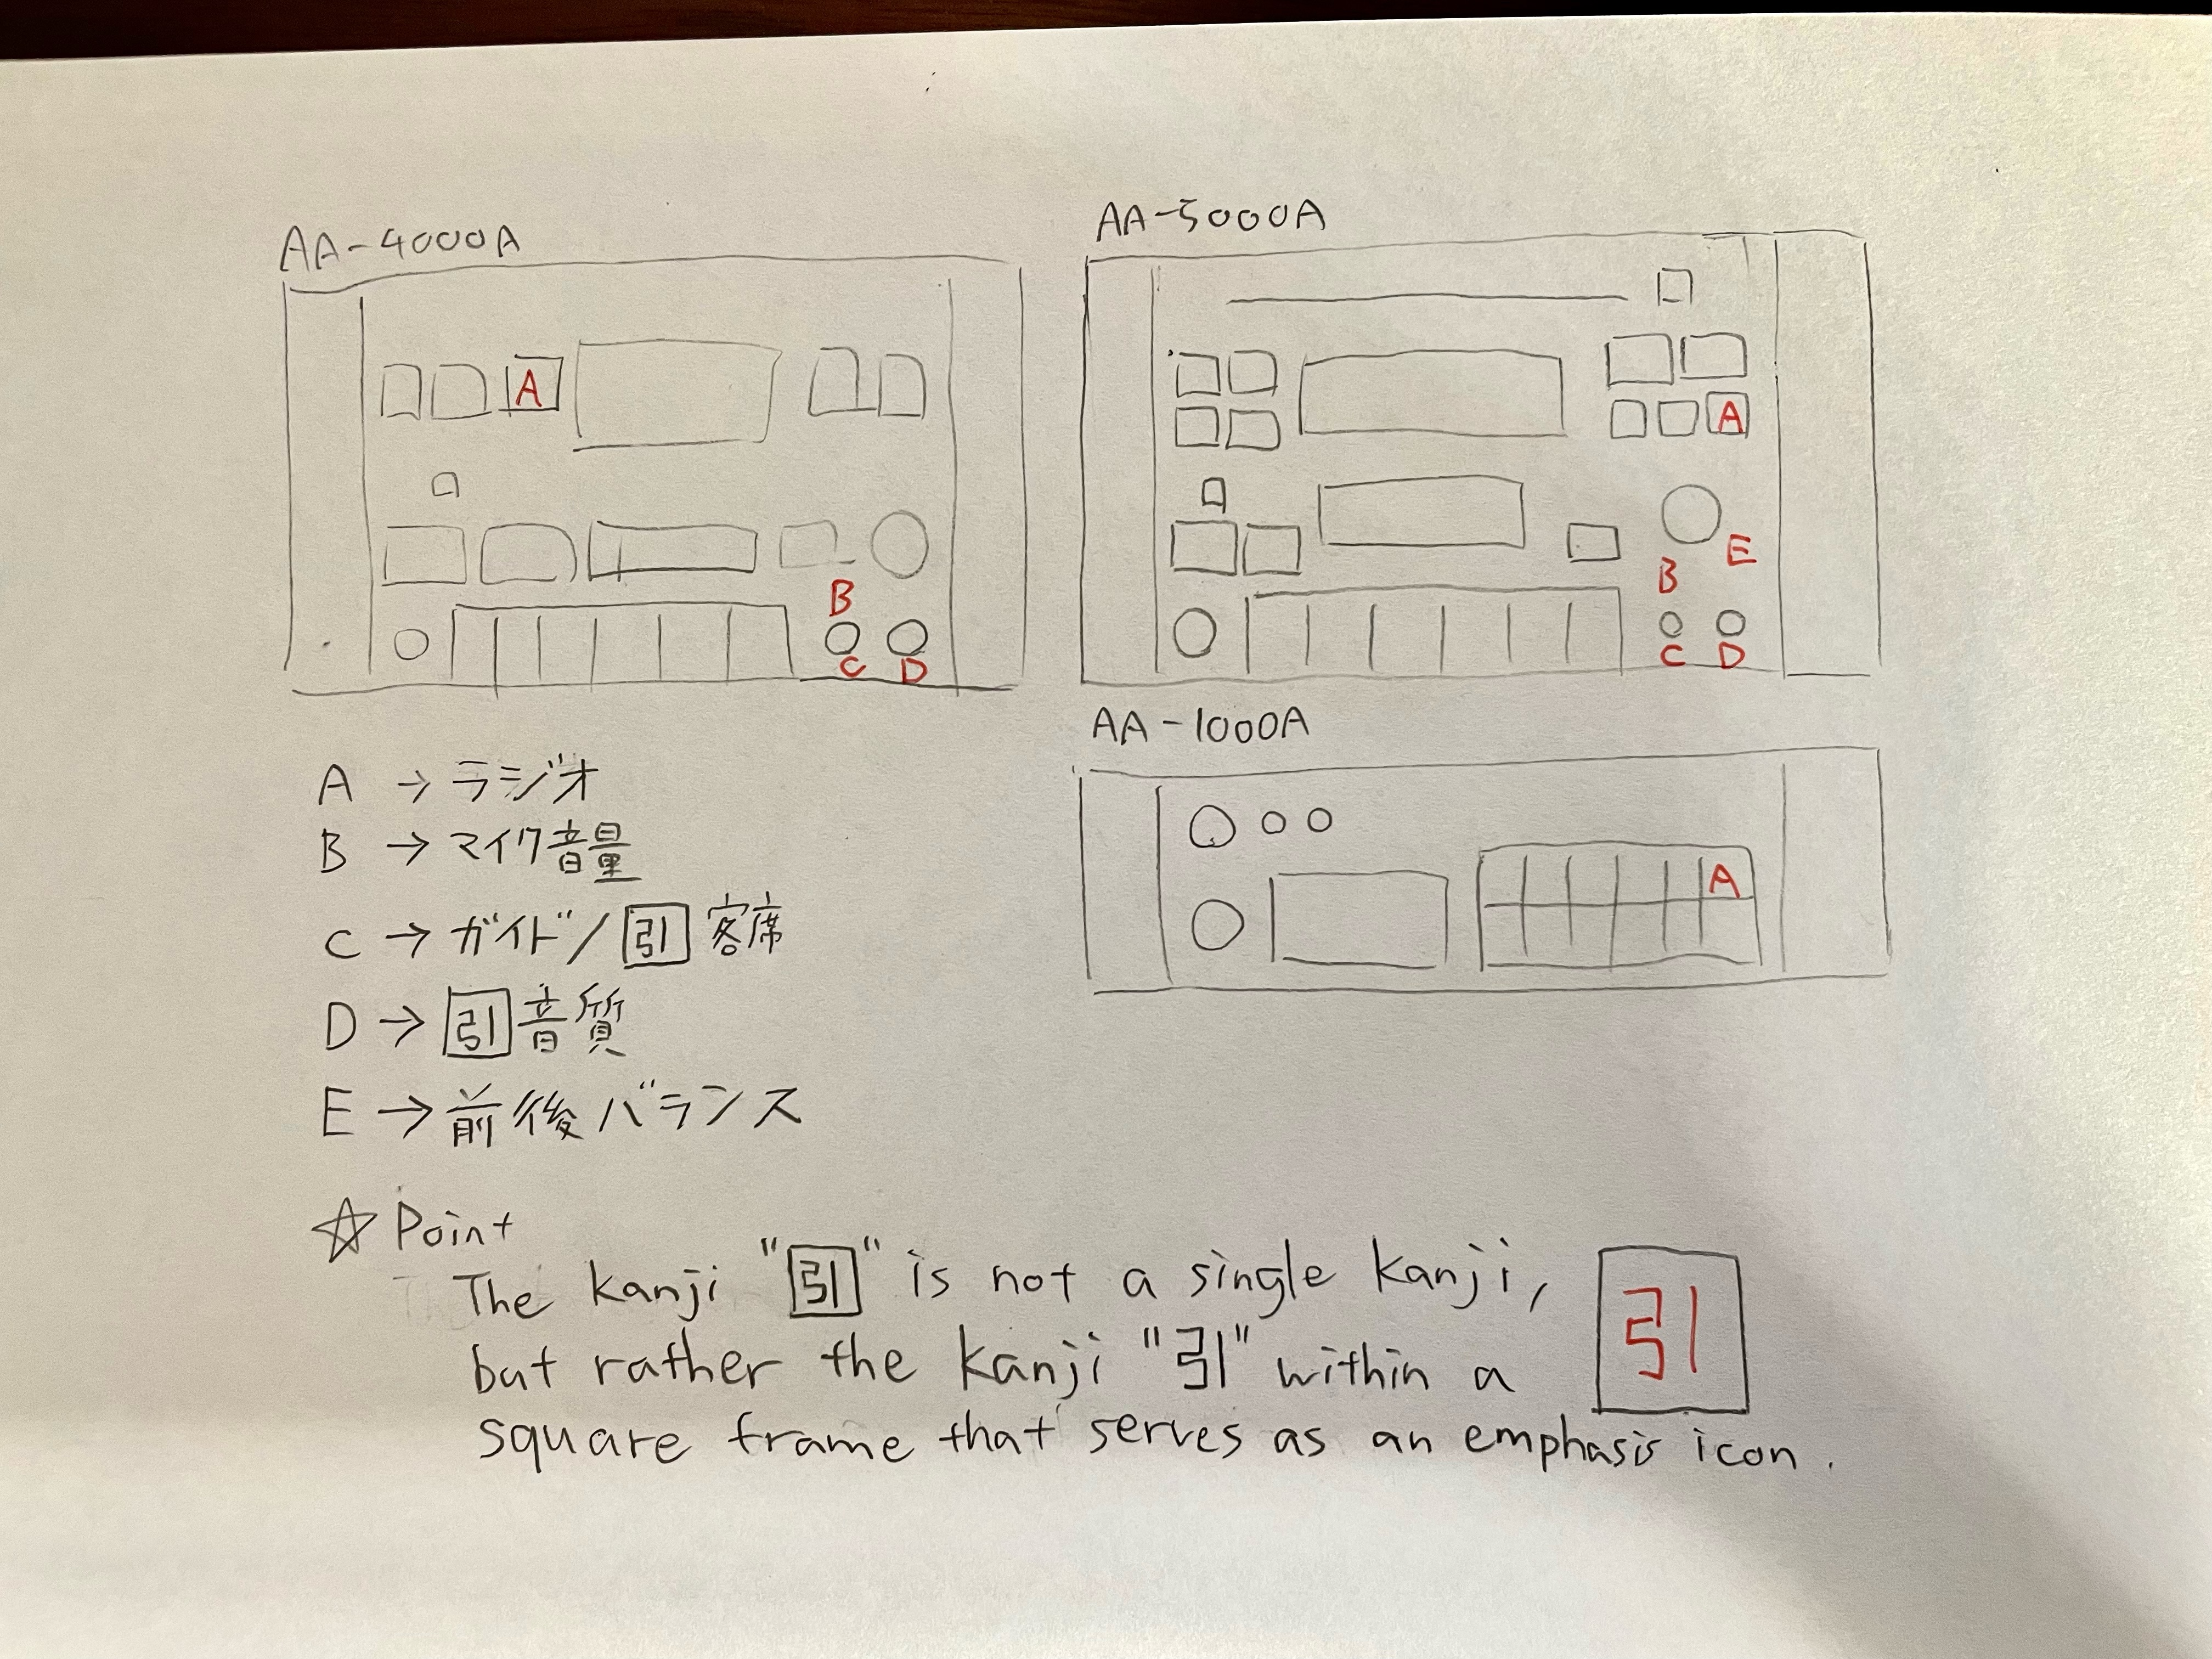 AA-4000A
A
B
C D
AA-5000A
A
E
B
C D
AA-1000A
A
A → ラジオ
B → マイク音量
C → ガイド/引客席
D → 引音質
E → 前後バランス
☆ Point
The kanji "引" is not a single kanji,
but rather the kanji "引" within a
square frame that serves as an emphasis icon.
引